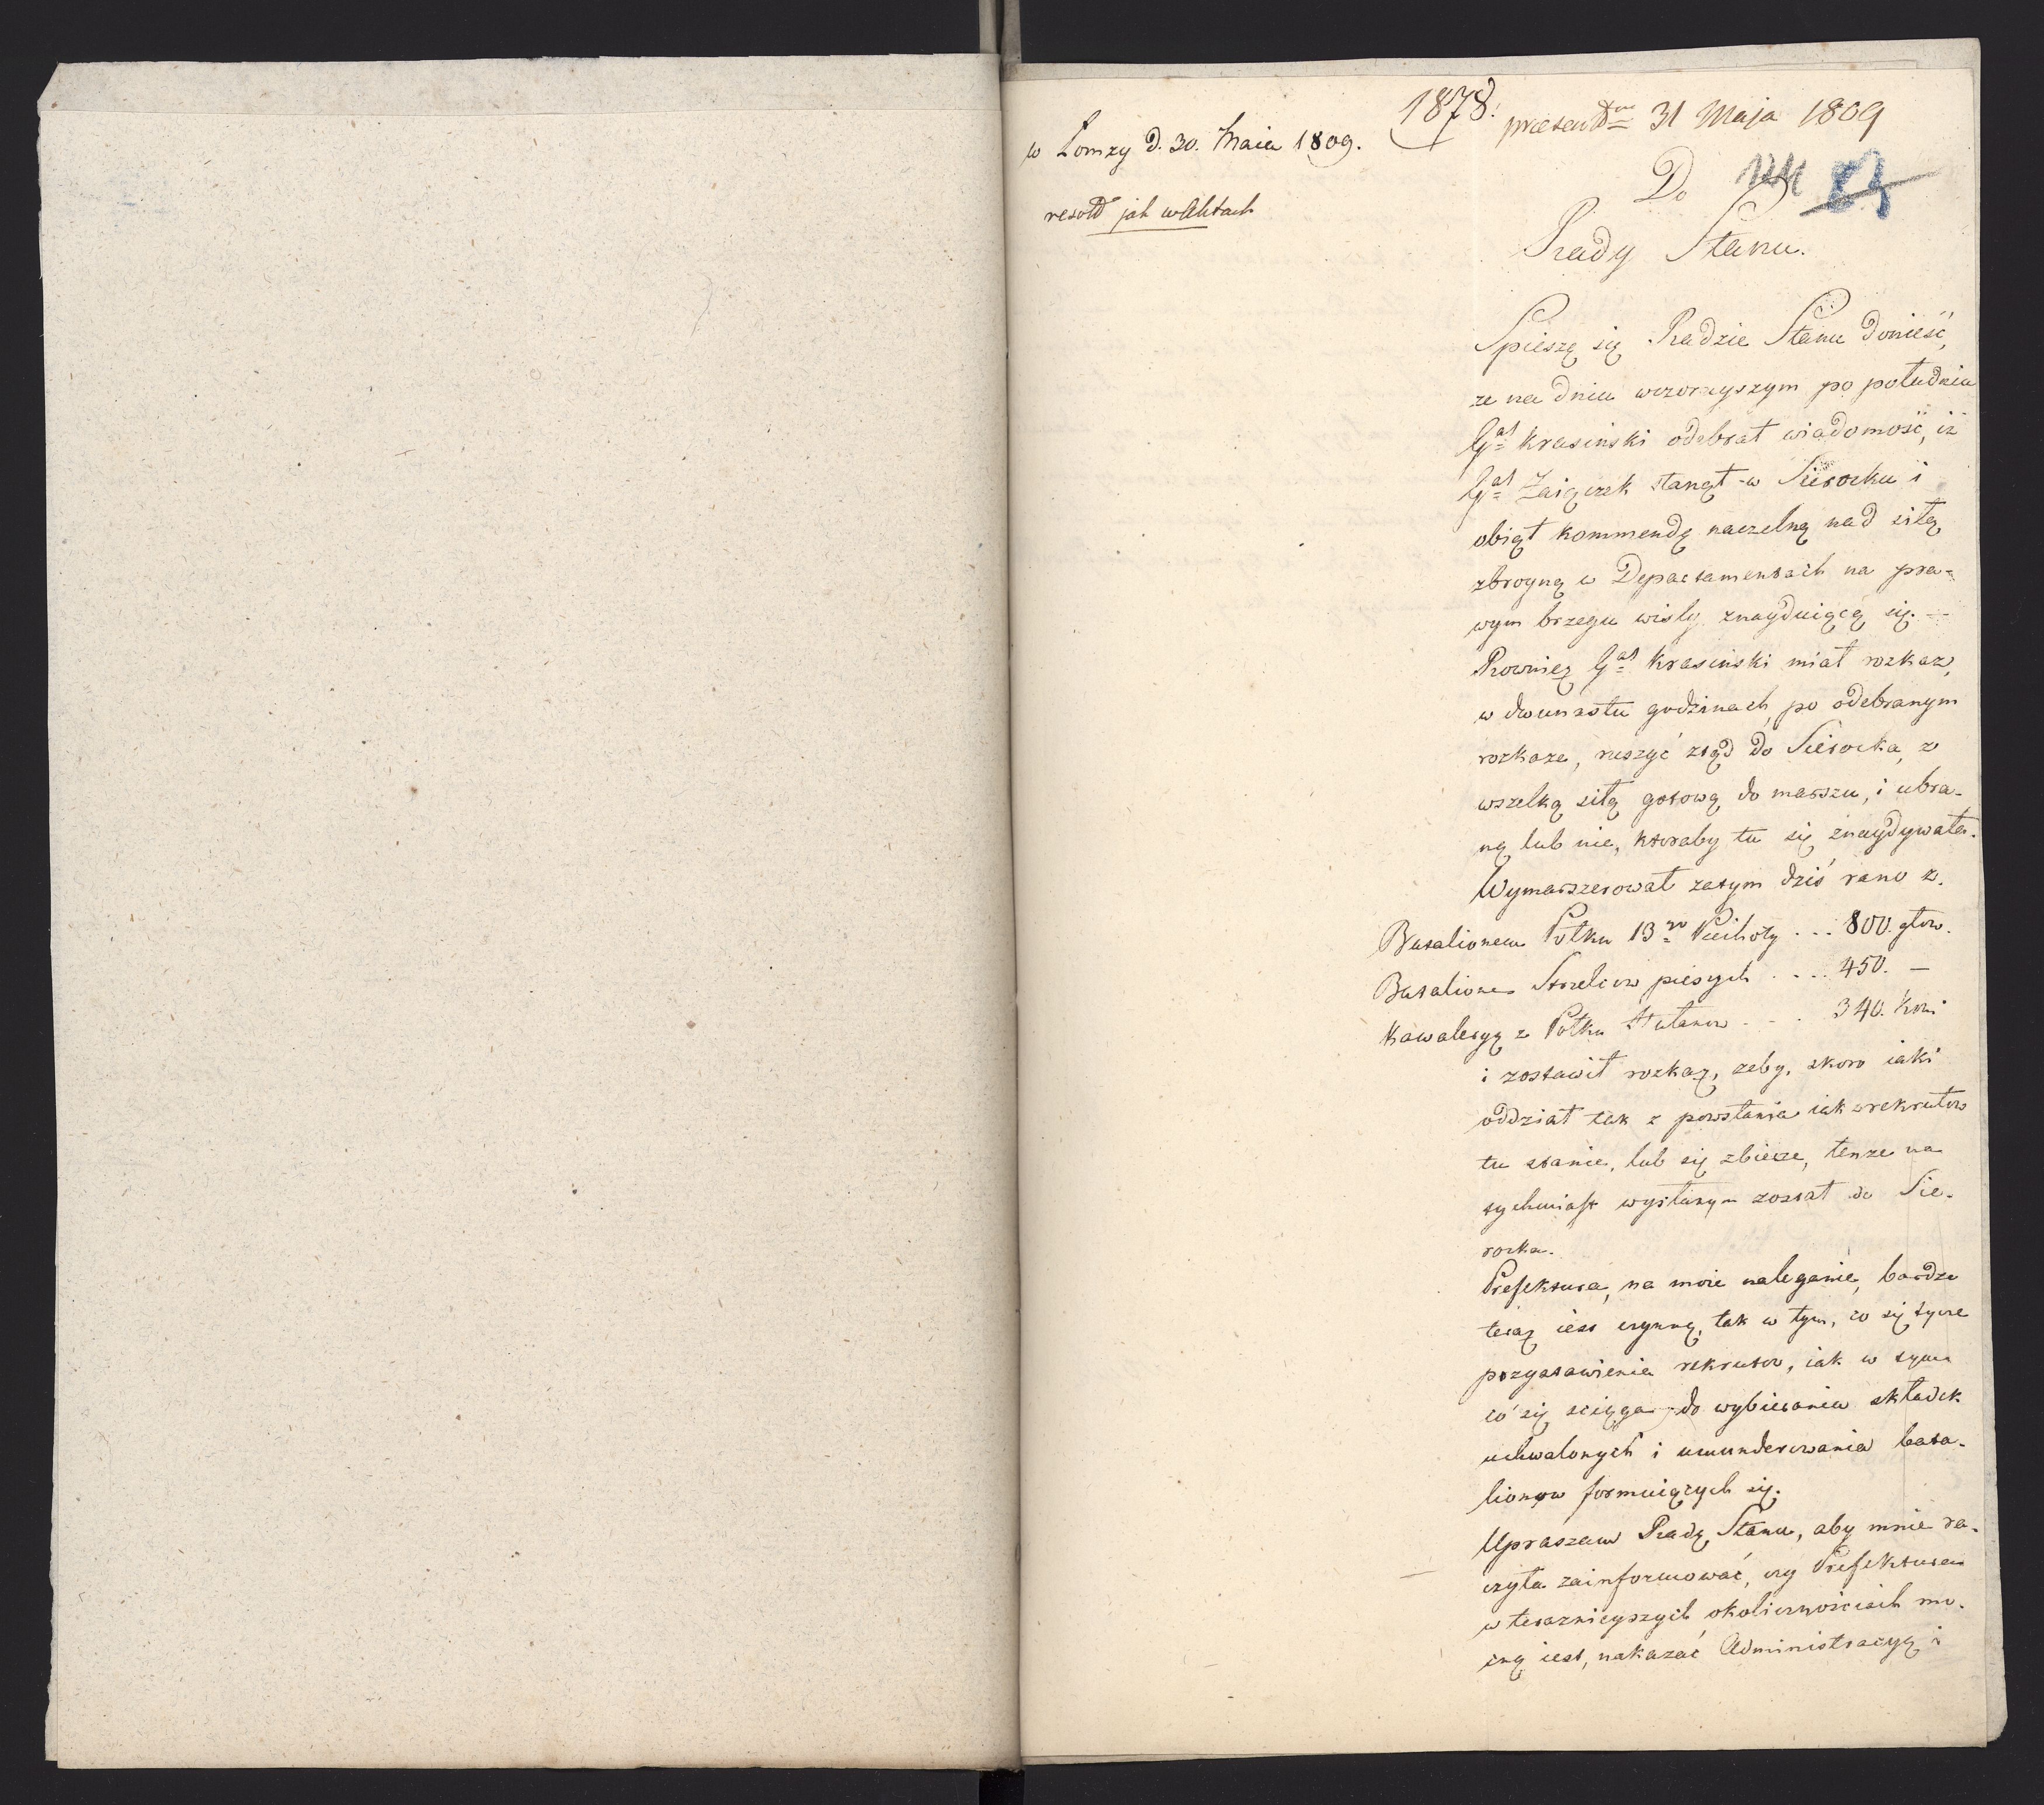 w Łomży d. 30. Maia 1809.
1878.
præsentm 31 Maja 1809
resold jak w aktach
Do
Rady Stanu.
Spieszę się Radzie Stanu donieść,
że na dniu wczorayszym po południu
Gał Krasiński odebrał wiadomość, iż
Gał Zaiączek stanął w Sierocku i
obiął kommendę naczelną nad siłą
zbroyną w Departamentach na pra-
wym brzegu wisły znayduiącą się. —
Rownież Gał Krasiński miał rozkaz,
w dwunastu godzinach, po odebranym
rozkaze, ruszyć ztąd do Sierocka, z
wszelką siłą gotową do marszu, i ubra-
ną lub nie, ktoraby tu się znaydywała.
Wymaszerował zatym dziś rano z.
Batalionem Pułku 13go Piechoty ... 800. głow.
Batalione Strzelcow pieszych .... 450. —
Kawaleryą z Pułku Hułanow . . . 340. koni
i zostawił rozkaz, żeby, skoro iaki
oddział tak z powstania iak z rekrutow
tu stanie, lub się zbierze, tenże na
tychmiast wysłanym został do Sie-
rocka.
Prefektura, na moie naleganie, bardzo
teraz iest czynną, tak w tym, co się tycze
przystawienia rekrutow, iak w tym
co się sciąga do wybierania składek
uchwalonych i umunderowania bata-
lionow formuiących się.
Upraszam Radę Stanu, aby mnie ra-
czyła zainformować, czy Prefektura
w teraznieyszych okolicznościach mo-
cną iest, nakazać Administracyą i